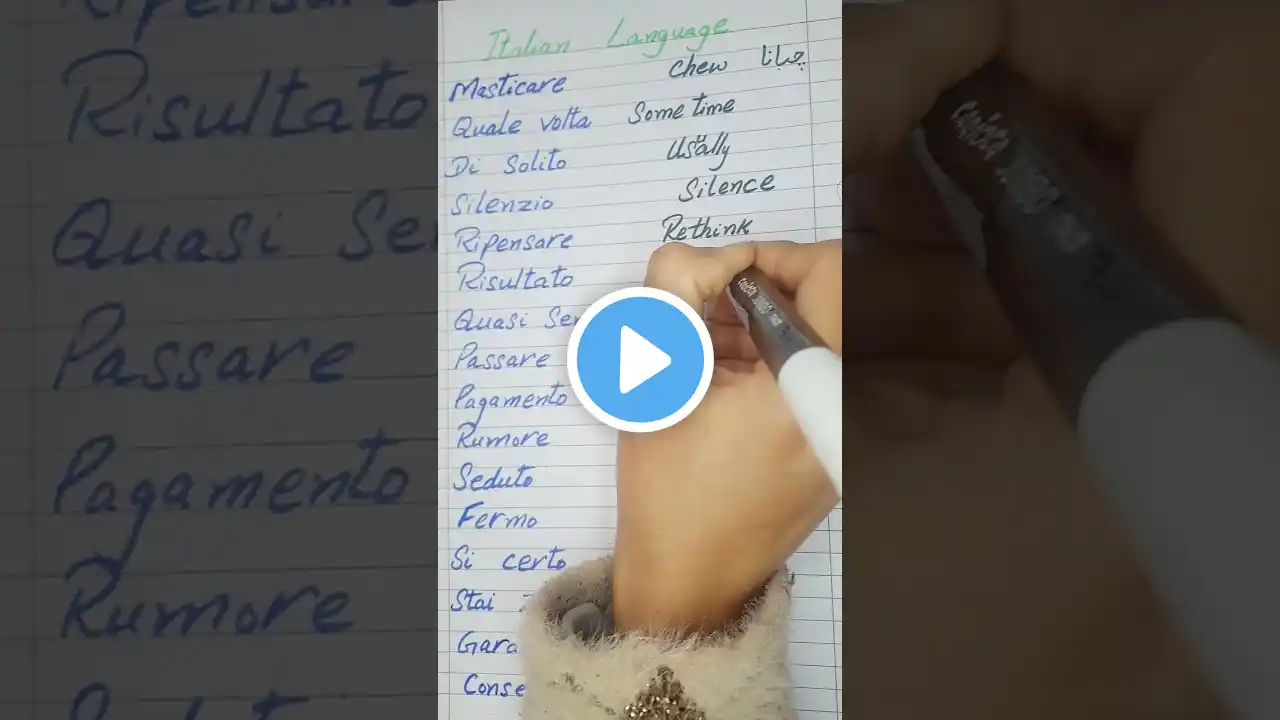 Italian Language
Masticare chew چبانا
Quale volta Some time
Di Solito Usally
Silenzio Silence
Ripensare Rethink
Risultato
Quasi Se
Passare
Pagamento
Rumore
Seduto
Fermo
Si certo
Stai
Gara
Conse